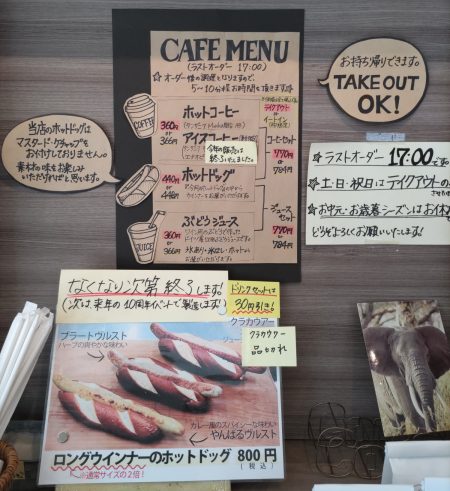 CAFE MENU
(ラストオーダー 17:00)
☆オーダー後の調理となりますので、
5~10分程お時間を頂きます
テイクアウト
or
イートイン
コーヒーセット
770円
or
784円
COFFEE
ホットコーヒー
360円
or
366円
アイスコーヒー
今年の販売は
終了いたしました。
ホットドッグ
440円
or
448円
ぶどうジュース
360円
or
366円
JUICE
ジュースセット
770円
or
784円
お持ち帰りできます。
TAKE OUT
OK!
当店のホットドッグは
マスタード・ケチャップを
おかけしておりません。
素材の味をお楽しみ
いただければと思います。
☆ラストオーダー 17:00です。
☆土・日・祝日はテイクアウトのみ
☆お中元・お歳暮シーズンはお休み
どうぞよろしくお願いいたします!
なくなり次第終了します!
(次は来年の10周年イベントで製造します!)
ドリンクセットは
30円引き!
クラカウアー
クラカウアー
品切れ
ブラートヴルスト
ハーブの爽やかな味わい
カレー風のスパイシーな味わい
やんばるヴルスト
ロングウインナーのホットドッグ 800円
(税込)
※通常サイズの2倍!